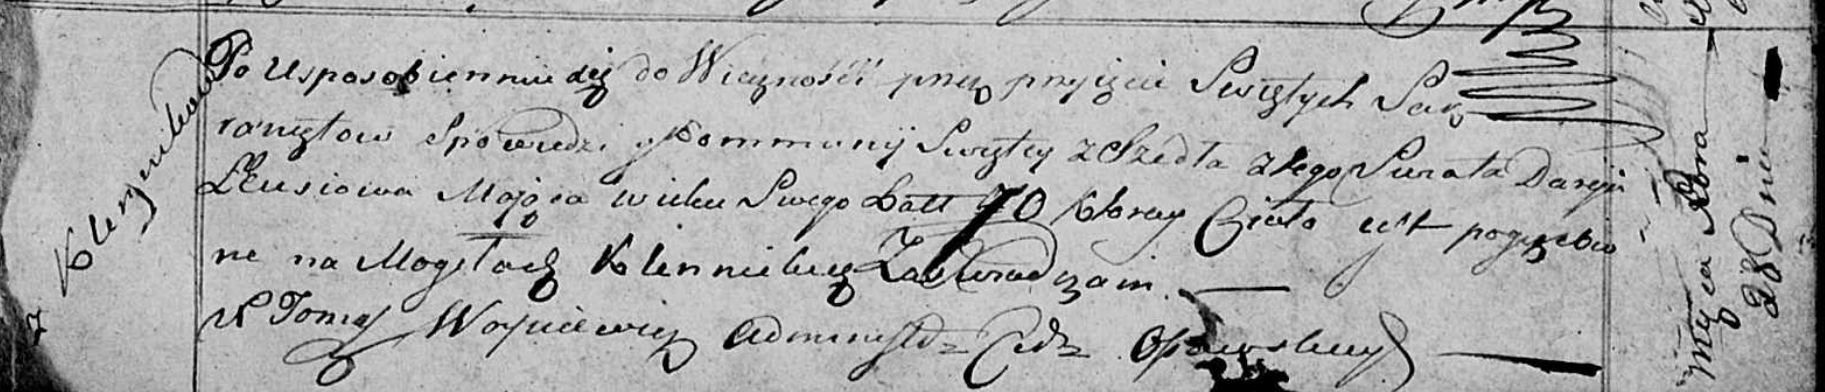 7 Klennikow
Po Usposobienniu się do Wiecznośći przez przyięcie Swiętych Sak
ramętow Spowiedzi y Kommunij Swiętey zeszedła z tego Swiata Daryia
Leusiowa Maiąca wieku Swego Latt 70 ktorey Ciało iest pogrzebio
ne na Mogiłach Klennickich Zaświadczam.
X Tomasz Woyniewicz Administ
28 Dnia